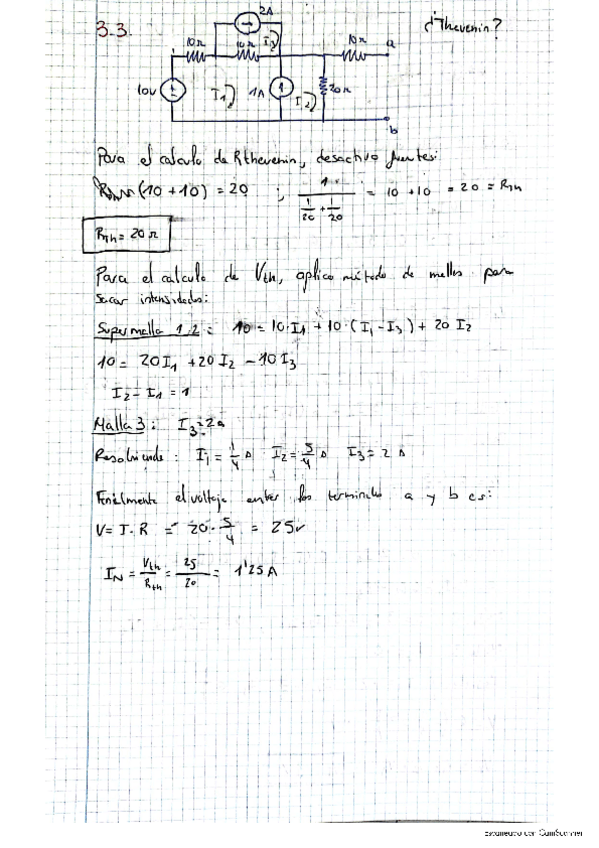 3.3. ¿Thevenin?
2A
10Ω 10Ω I3 10Ω a
10v I1 1A I2 20Ω
b
Para el calculo de Rthevenin, desactivo fuentes:
(10+10) = 20 ; 1/(1/20 + 1/20) = 10 + 10 = 20 = RTh
RTh = 20 Ω
Para el calculo de Vth, aplico método de mallas para
sacar intensidades:
Supermalla 1,2 : 10 = 10·I1 + 10·(I1 - I3) + 20 I2
10 = 20I1 + 20I2 - 10I3
I2 - I1 = 1
Malla 3 : I3 = 2a
Resolviendo : I1 = 1/4 A I2 = 5/4 A I3 = 2 A
Finalmente el voltaje entre los terminales a y b es:
V = I·R = 20·5/4 = 25v
IN = Vth/Rth = 25/20 = 1'25 A
Escaneado con CamScanner